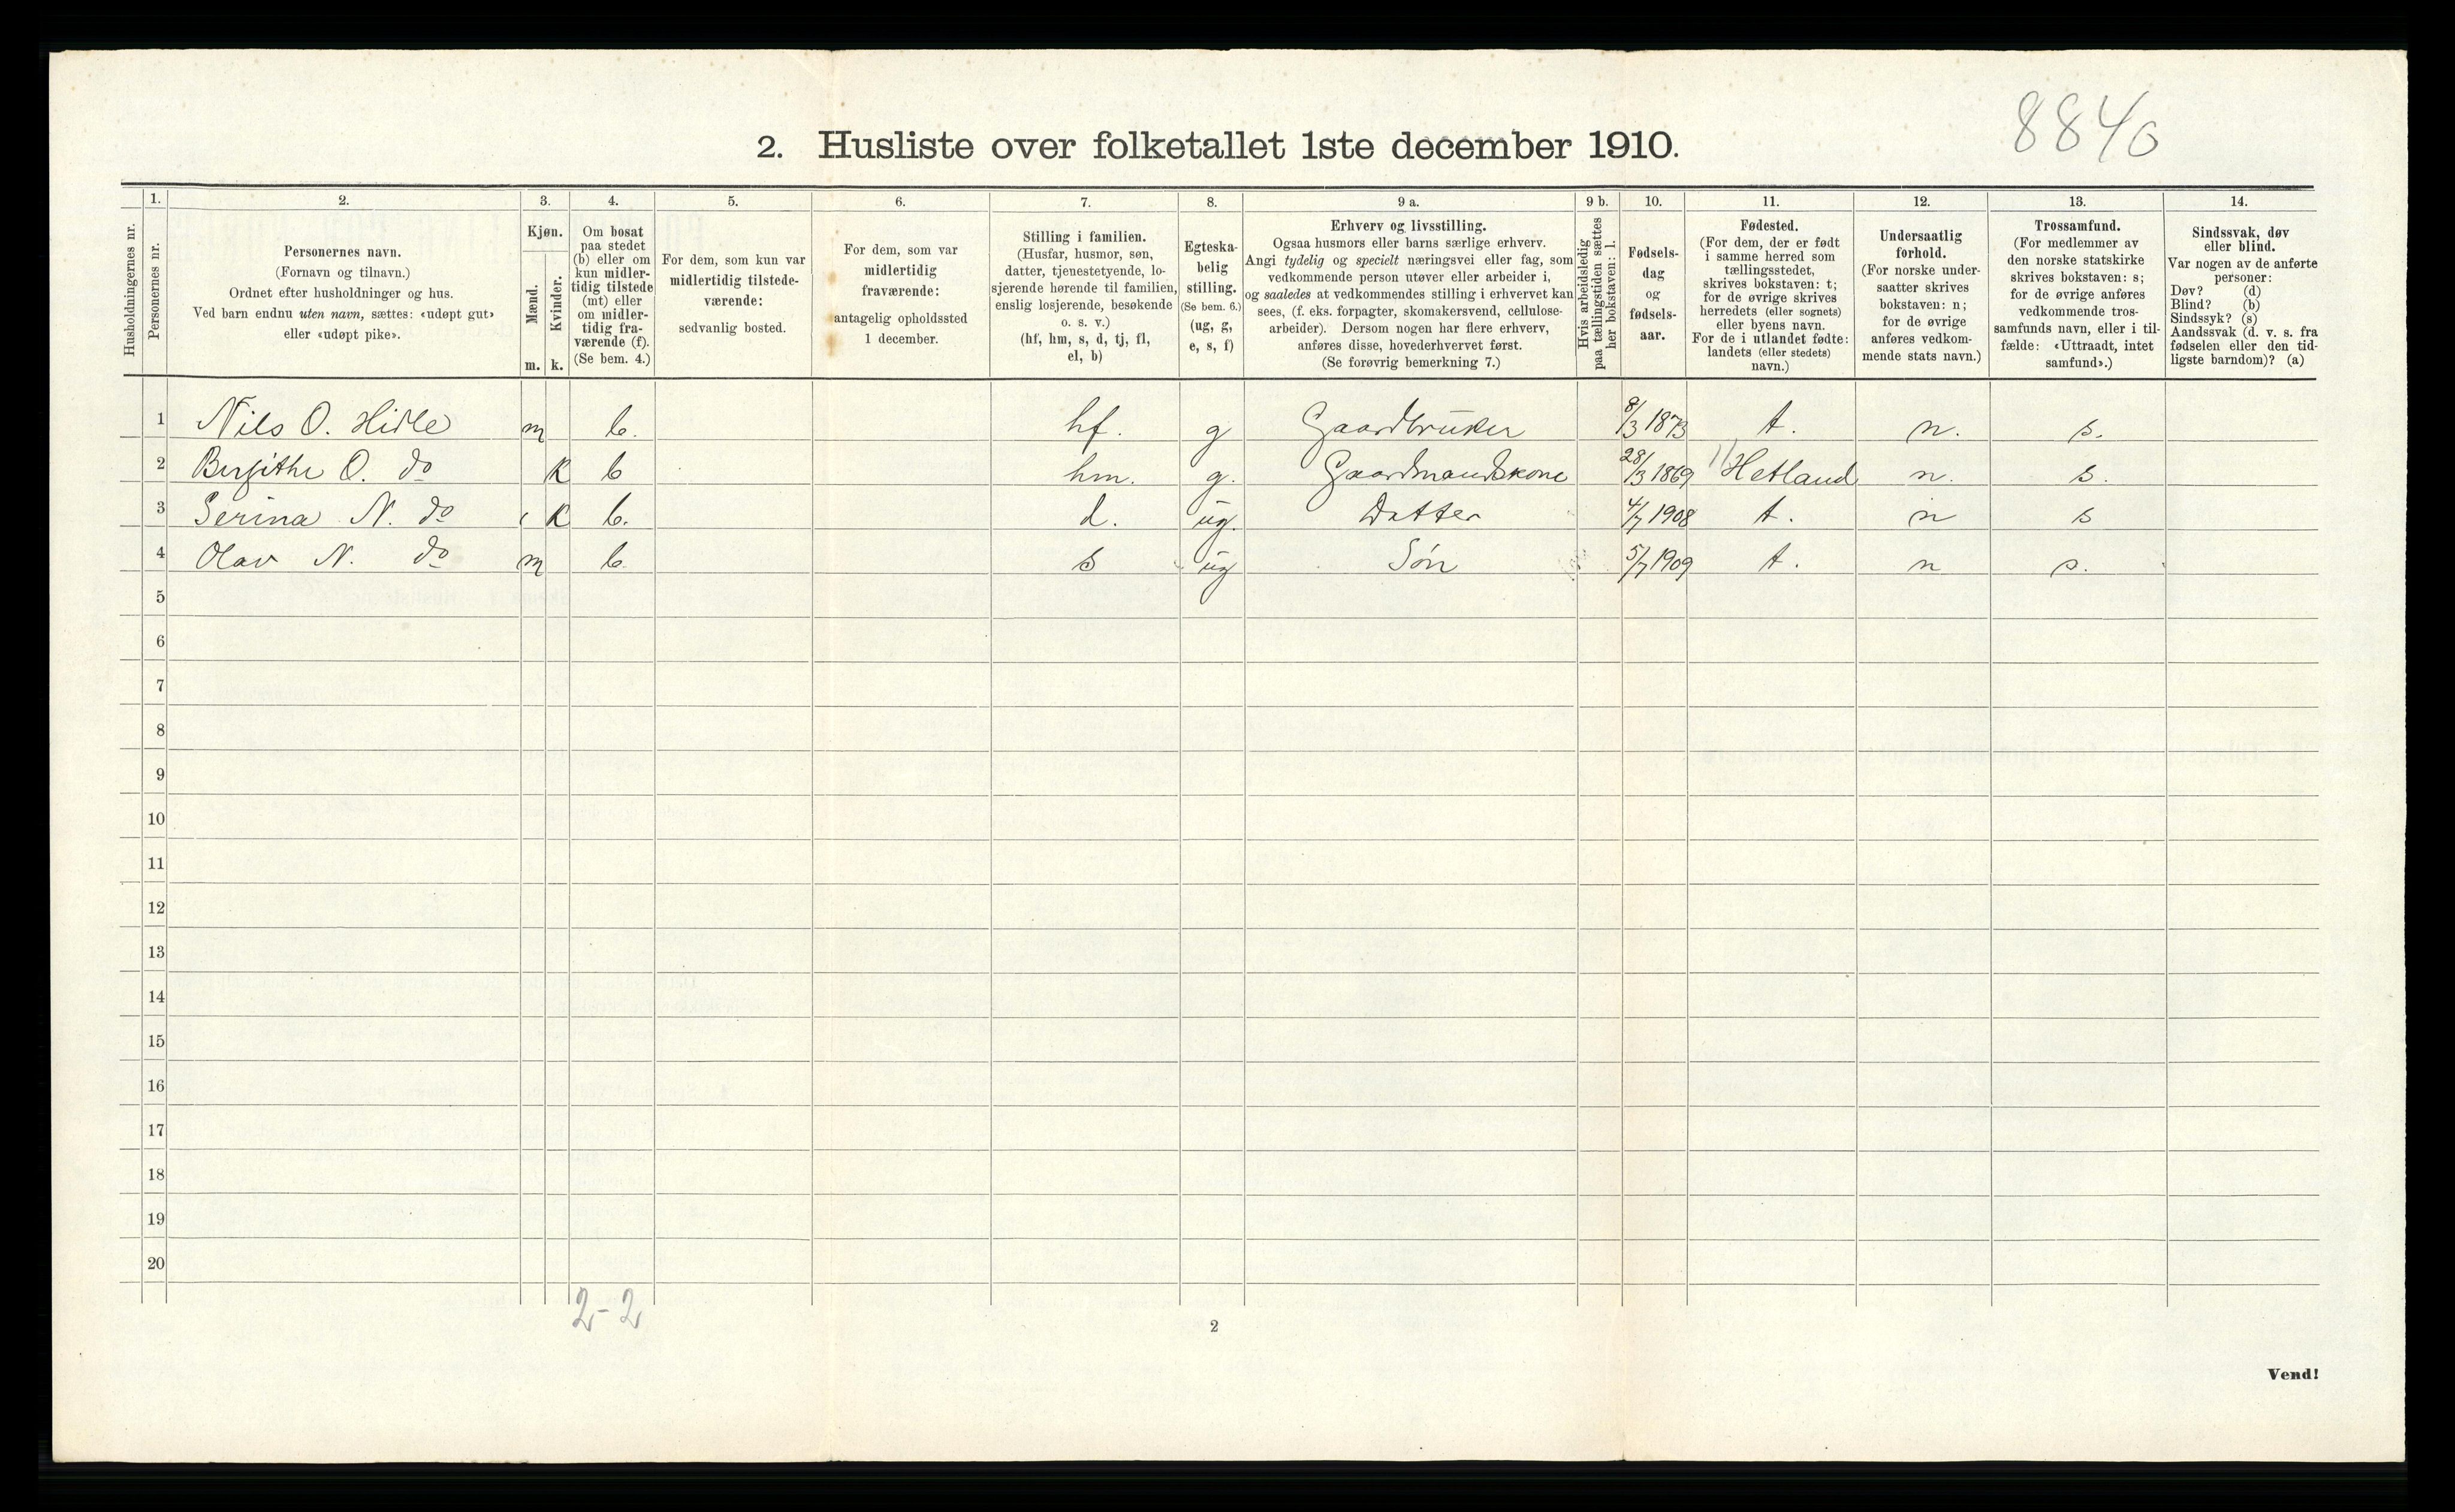 8840
2. Husliste over folketallet 1ste december 1910.
Husholdningernes nr.
1.
Personernes nr.
2.
Personernes navn.
(Fornavn og tilnavn.)
Ordnet efter husholdninger og hus.
Ved barn endnu uten navn, sættes: «udøpt gut»
eller «udøpt pike».
3.
Kjøn.
Mænd.
m.
Kvinder.
k.
4.
Om bosat
paa stedet
(b) eller om
kun midler-
tidig tilstede
(mt) eller
om midler-
tidig fra-
værende (f).
(Se bem. 4.)
5.
For dem, som kun var
midlertidig tilstede-
værende:
sedvanlig bosted.
6.
For dem, som var
midlertidig
fraværende:
antagelig opholdssted
1 december.
7.
Stilling i familien.
(Husfar, husmor, søn,
datter, tjenestetyende, lo-
sjerende hørende til familien,
enslig losjerende, besøkende
o. s. v.)
(hf, hm, s, d, tj, fl,
el, b)
8.
Egteska-
belig
stilling.
(Se bem. 6.)
(ug, g,
e, s, f)
9 a.
Erhverv og livsstilling.
Ogsaa husmors eller barns særlige erhverv.
Angi tydelig og specielt næringsvei eller fag, som
vedkommende person utøver eller arbeider i,
og saaledes at vedkommendes stilling i erhvervet kan
sees, (f. eks. forpagter, skomakersvend, cellulose-
arbeider). Dersom nogen har flere erhverv,
anføres disse, hovederhvervet først.
(Se forøvrig bemerkning 7.)
9 b.
Hvis arbeidsledig
paa tællingstiden sættes
her bokstaven: l.
10.
Fødsels-
dag
og
fødsels-
aar.
11.
Fødested.
(For dem, der er født
i samme herred som
tællingsstedet,
skrives bokstaven: t;
for de øvrige skrives
herredets (eller sognets)
eller byens navn.
For de i utlandet fødte:
landets (eller stedets)
navn.)
12.
Undersaatlig
forhold.
(For norske under-
saatter skrives
bokstaven: n;
for de øvrige
anføres vedkom-
mende stats navn.)
13.
Trossamfund.
(For medlemmer av
den norske statskirke
skrives bokstaven: s;
for de øvrige anføres
vedkommende tros-
samfunds navn, eller i til-
fælde: «Uttraadt, intet
samfund».)
14.
Sindssvak, døv
eller blind.
Var nogen av de anførte
personer:
Døv? (d)
Blind? (b)
Sindssyk? (s)
Aandssvak (d. v. s. fra
fødselen eller den tid-
ligste barndom)? (a)
1 Nils O. Hidle m b. hf. g Gaardbruker 8/3 1873 t. n. s.
2 Bergithe O. do K b hm. g. Gaardmandskone 28/3 1869 11 Hetland n. s.
3 Serina N. do K b. d. ug. Datter 4/7 1908 t. n s
4 Olav N. do m b. s ug Søn 5/7 1909 t. n s.
5
6
7
8
9
10
11
12
13
14
15
16
17
18
19
20
2-2
2
Vend!